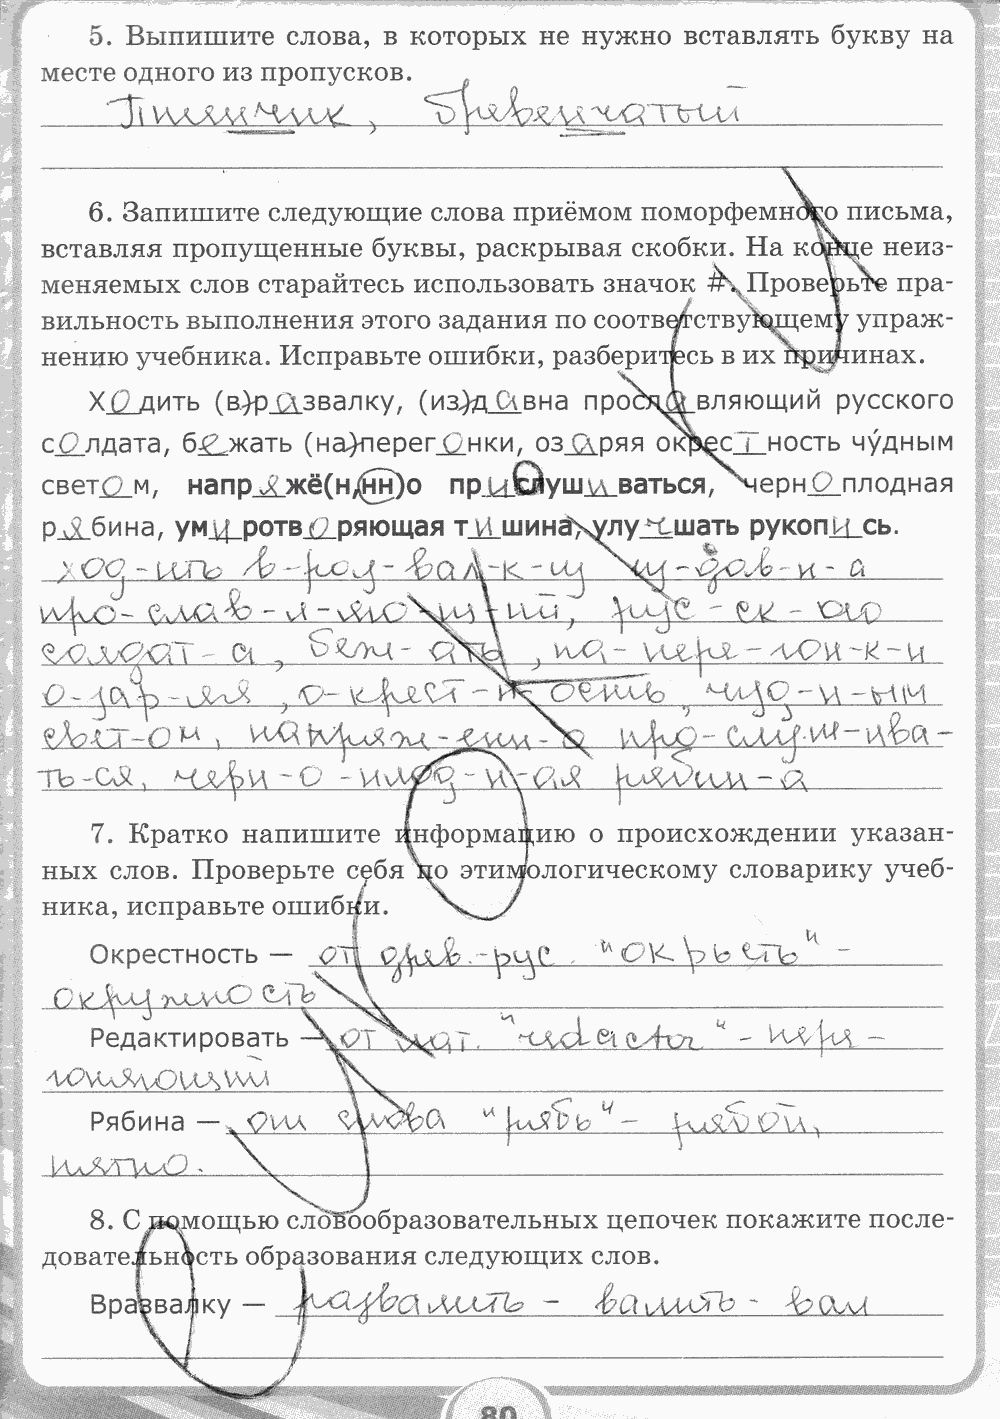 5. Выпишите слова, в которых не нужно вставлять букву на
месте одного из пропусков.
Птенчик, бревенчатый
6. Запишите следующие слова приёмом поморфемного письма,
вставляя пропущенные буквы, раскрывая скобки. На конце неиз-
меняемых слов старайтесь использовать значок #. Проверьте пра-
вильность выполнения этого задания по соответствующему упраж-
нению учебника. Исправьте ошибки, разберитесь в их причинах.
Ходить (в)развалку, (из)давна прославляющий русского
солдата, бежать (на)перегонки, озаряя окрестность чу́дным
светом, напряжё(н,нн)о прислушиваться, черноплодная
рябина, умиротворяющая тишина, улучшать рукопись.
ход-ить в-роз-вал-к-у из-дав-н-а
про-слав-л-яю-щ-ий, рус-ск-ого
солдат-а, беж-ать, на-пере-гон-к-и
о-зар-яя, о-крест-н-ость, чуд-н-ым
свет-ом, напряж-енн-о про-слуш-ива-
ть-ся, черн-о-плод-н-ая рябин-а
7. Кратко напишите информацию о происхождении указан-
ных слов. Проверьте себя по этимологическому словарику учеб-
ника, исправьте ошибки.
Окрестность — от древ.-рус. "окрьсть" -
окружность
Редактировать — от лат. "redactor" - пере-
гоняющий
Рябина — от слова "рябь" - рябой,
пятно.
8. С помощью словообразовательных цепочек покажите после-
довательность образования следующих слов.
Вразвалку — развалить - валить - вал
80